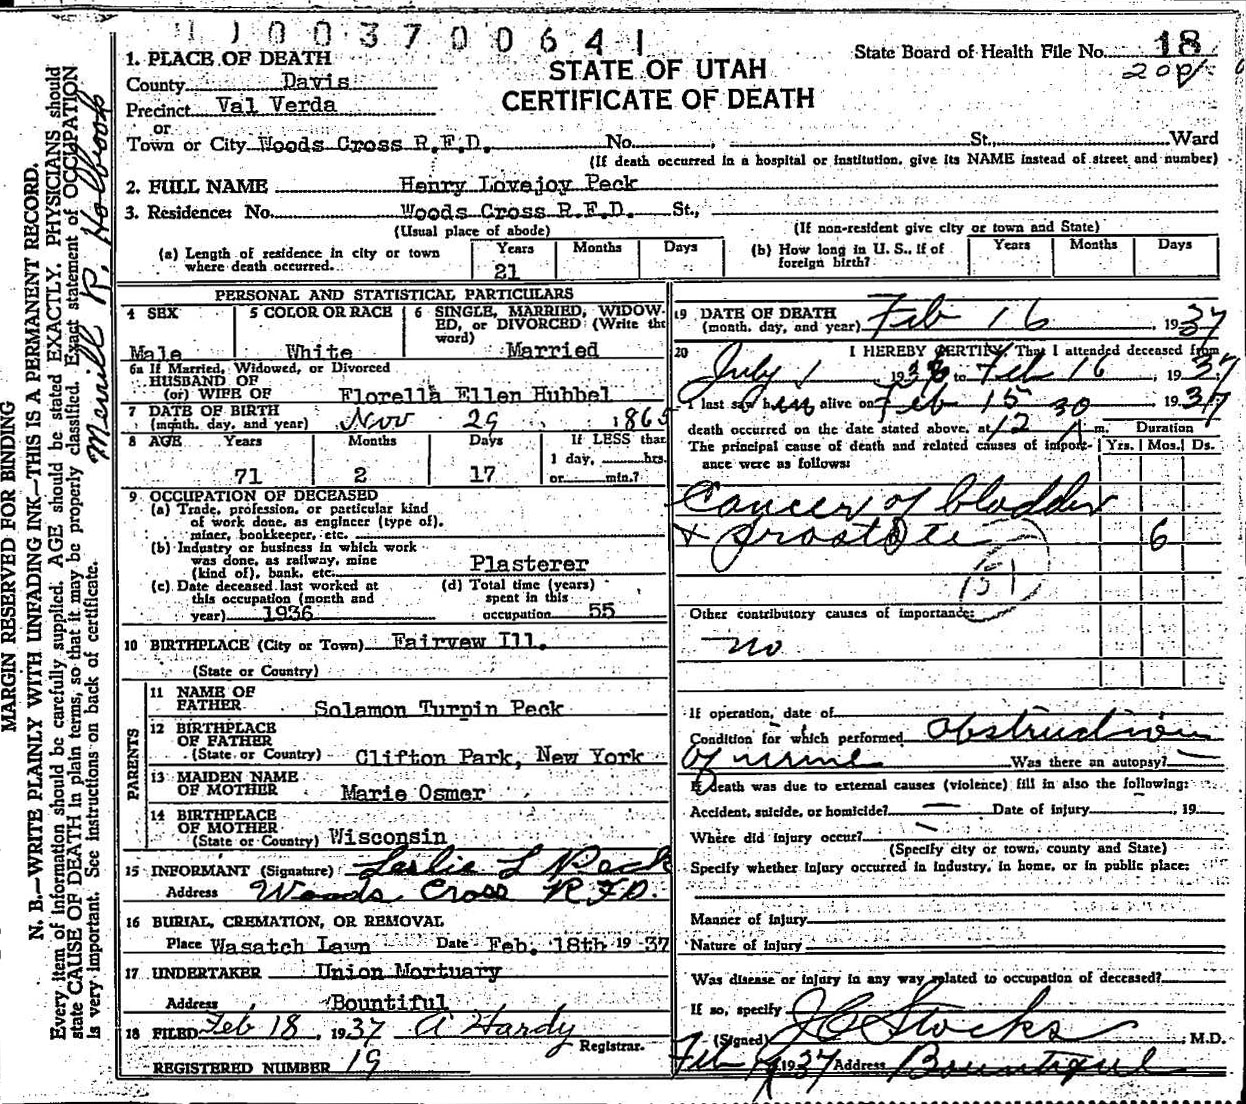 1 1 0 0 3 7 0 0 6 4 1
State Board of Health File No. 18
STATE OF UTAH
CERTIFICATE OF DEATH
1. PLACE OF DEATH
County Davis
Precinct Val Verda
or
Town or City Woods Cross R.F.D. No. St., Ward
(If death occurred in a hospital or institution, give its NAME instead of street and number)
2. FULL NAME Henry Lovejoy Peck
3. Residence: No. Woods Cross R.F.D. St.,
(Usual place of abode)
(If non-resident give city or town and State)
(a) Length of residence in city or town where death occurred. Years 21 Months Days
(b) How long in U. S., if of foreign birth? Years Months Days
PERSONAL AND STATISTICAL PARTICULARS
4 SEX Male
5 COLOR OR RACE White
6 SINGLE, MARRIED, WIDOWED, or DIVORCED (Write the word) Married
6a If Married, Widowed, or Divorced
HUSBAND OF
(or) WIFE OF Florella Ellen Hubbel
7 DATE OF BIRTH
(month, day, and year) Nov 29 1865
8 AGE Years 71 Months 2 Days 17 If LESS than 1 day, hrs. or min.?
9 OCCUPATION OF DECEASED
(a) Trade, profession, or particular kind
of work done, as engineer (type of),
miner, bookkeeper, etc.
(b) Industry or business in which work
was done, as railway, mine
(kind of), bank, etc. Plasterer
(c) Date deceased last worked at
this occupation (month and
year) 1936
(d) Total time (years)
spent in this
occupation 55
10 BIRTHPLACE (City or Town) Fairvew Ill.
(State or Country)
PARENTS
11 NAME OF
FATHER Solamon Turpin Peck
12 BIRTHPLACE
OF FATHER
(State or Country) Clifton Park, New York
13 MAIDEN NAME
OF MOTHER Marie Osmer
14 BIRTHPLACE
OF MOTHER
(State or Country) Wisconsin
15 INFORMANT (Signature) Leslie L Peck
Address Woods Cross R.F.D.
16 BURIAL, CREMATION, OR REMOVAL
Place Wasatch Lawn Date Feb. 18th 19 37
17 UNDERTAKER Union Mortuary
Address Bountiful
18 FILED Feb 18, 1937 A Hardy
Registrar.
REGISTERED NUMBER 19
19 DATE OF DEATH
(month, day, and year) Feb 16, 1937
20 I HEREBY CERTIFY, That I attended deceased from
July 1 1936 to Feb 16, 1937
I last saw him alive on Feb 15 1937
death occurred on the date stated above, at 12 30 A m. Duration
The principal cause of death and related causes of importance were as follows: Yrs. Mos. Ds.
Cancer of bladder
+ prostate 6
51
Other contributory causes of importance:
no
If operation, date of
Condition for which performed obstruction
of urine Was there an autopsy? —
If death was due to external causes (violence) fill in also the following:
Accident, suicide, or homicide? — Date of injury, 19
Where did injury occur?
(Specify city or town, county and State)
Specify whether injury occurred in industry, in home, or in public place:
Manner of injury
Nature of injury
Was disease or injury in any way related to occupation of deceased?
If so, specify
(Signed) J C Stocks, M.D.
Feb 1937 Address Bountiful
MARGIN RESERVED FOR BINDING
N. B.—WRITE PLAINLY WITH UNFADING INK—THIS IS A PERMANENT RECORD.
Every item of information should be carefully supplied. AGE should be stated EXACTLY. PHYSICIANS should
state CAUSE OF DEATH in plain terms, so that it may be properly classified. Exact statement of OCCUPATION
is very important. See instructions on back of certificate.
Merrill R. Holbrook